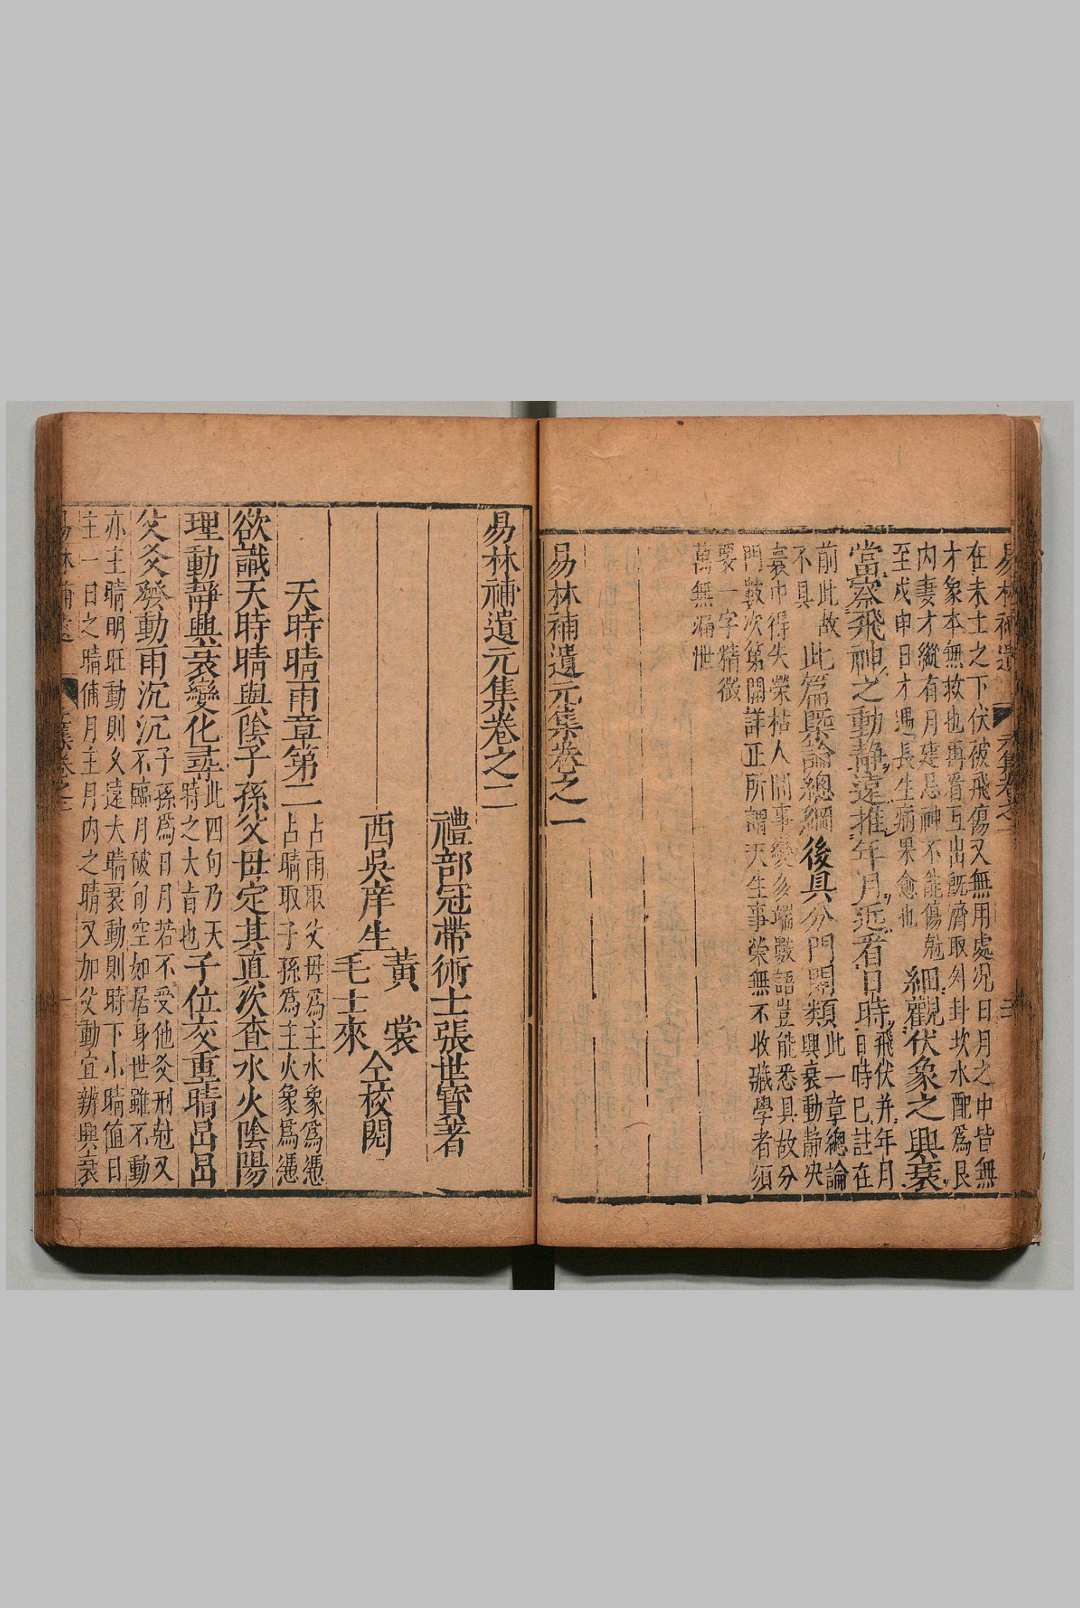 在未土之下伏被飛傷又無用處況日月之中皆無
才象本無救也再看互出旣濟取外卦坎水配為艮
內妻才纔有月建忌神不能傷尅
至戌申日才遇長生病果愈也
細觀伏象之興衰
當察飛神之動靜遠推年月近看日時
飛伏并年月
日時已註在
前此故
不具
此篇槩論總綱後具分門閞類
此一章總論
興衰動靜决
蓍中得失榮枯人間事變多端數語豈能悉具故分
門數次第開詳正所謂天生事業無不收藏學者須
要一字精微
萬無漏泄
易林補遺元集卷之一
易林補遺元集卷之二
禮部冠帶術士張世寶著
西吳庠生
黃裳
毛士來
仝校閱
天時晴雨章第二
占雨取父母為主水象為憑
占晴取子孫為主火象為憑
欲識天時晴與陰子孫父母定其真次查水火陰陽
理動靜興衰變化尋
此四句乃天
時之大旨也
子位交重晴杲杲
父爻發動雨沉沉
子孫為日月若不受他爻刑尅又
不臨月破旬空如居身世雖不動
亦主晴明旺動則久遠大晴衰動則時下小晴值日
主一日之晴值月主月內之晴又加父動宜辨興衰